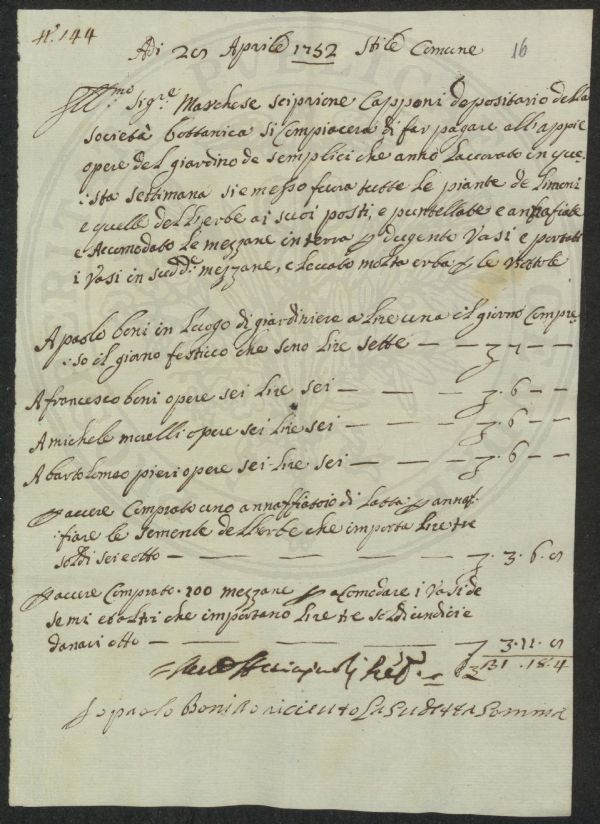 N.° 144
Adi 28 Aprile 1752 Stile Comune 16
Ill:mo Sig:re Marchese scipione Capponi depositario della
società bottanica si Compiacera di far pagare all'appie
opere del giardino de semplici che anno Lavorato in que
:sta settimana si e messo fuora tutte Le piante de Limoni
e quelle dell'erbe ai suoi posti, e puntellate e annafiate
e Accomodato Le mezzane in terra p dugento Vasi e portati
i Vasi in sudd: mezzane, e Levato molta erba p le Viottole
A paolo boni in Luogo di giardiniere a Lire una il giorno Compre
:so il giorno festivo che sono Lire sette — — 7 — —
A francesco boni opere sei Lire sei — — — — 6 — —
A michele morelli opere sei Lire sei — — — — 6 — —
A bartolomeo pieri opere sei Lire sei — — — — 6 — —
p avere Comprato uno annaffiatoio di Latta p annaf
:fiare le semente dell'erbe che importa Lire tre
soldi sei e otto — — — — — 3. 6. 8
p avere Comprato. 100 mezzane p acomodare i Vasi de
semi ed altri che importano Lire tre soldi undici e
danari otto — — — — 3. 11. 8
31. 18. 4
Io paolo Boni o riceuto La sudetta somma